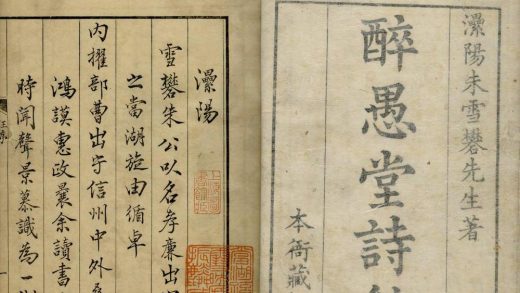 灤陽朱雪礬先生著
醉愚堂詩
本衙藏
灤陽
雪礬朱公以名孝廉出
之當湖旋由循卓
內擢部曹出守信州中外
鴻謨惠政曩余讀書
時聞聲景慕識爲一